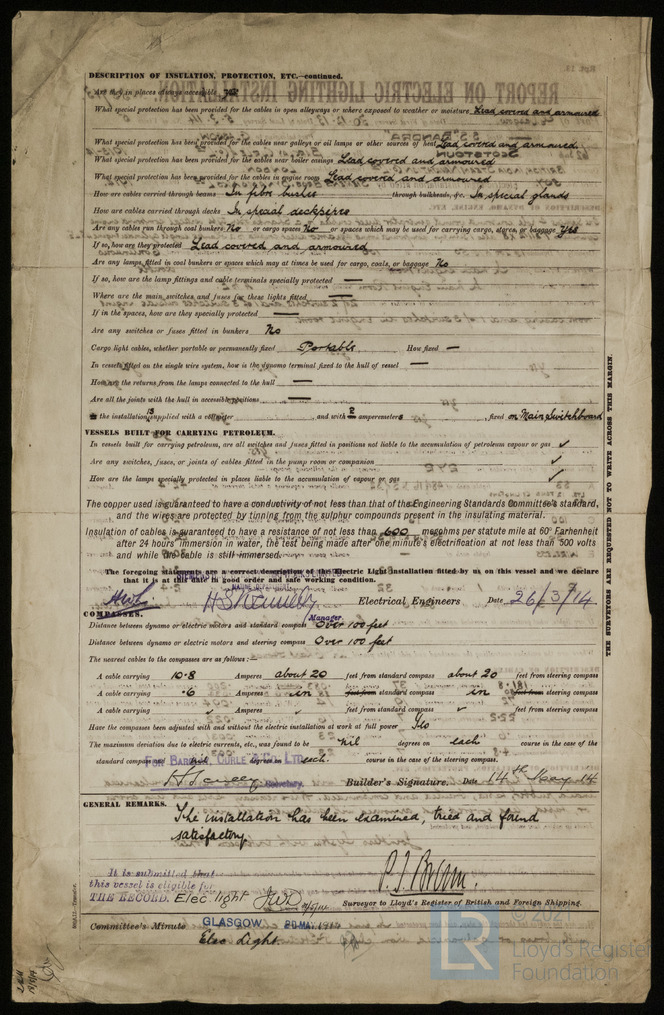 DESCRIPTION OF INSULATION, PROTECTION, ETC.—continued.
Are they in places always accessible Yes
What special protection has been provided for the cables in open alleyways or where exposed to weather or moisture Lead covered and armoured
What special protection has been provided for the cables near galleys or oil lamps or other sources of heat Lead covered and armoured
What special protection has been provided for the cables near boiler casings Lead covered and armoured
What special protection has been provided for the cables in engine room Lead covered and armoured
How are cables carried through beams In fibre bushes through bulkheads, &c. In special glands
How are cables carried through decks In special deckpipes
Are any cables run through coal bunkers No or cargo spaces No or spaces which may be used for carrying cargo, stores, or baggage Yes
If so, how are they protected Lead covered and armoured
Are any lamps fitted in coal bunkers or spaces which may at times be used for cargo, coals, or baggage No
If so, how are the lamp fittings and cable terminals specially protected —
Where are the main switches and fuses for these lights fitted —
If in the spaces, how are they specially protected —
Are any switches or fuses fitted in bunkers No
Cargo light cables, whether portable or permanently fixed Portable How fixed —
In vessels fitted on the single wire system, how is the dynamo terminal fixed to the hull of vessel —
How are the returns from the lamps connected to the hull —
Are all the joints with the hull in accessible positions —
the installation is supplied with a voltmeter and with 2 amperemeters, fixed on Main Switchboard
VESSELS BUILT FOR CARRYING PETROLEUM.
In vessels built for carrying petroleum, are all switches and fuses fitted in positions not liable to the accumulation of petroleum vapour or gas ✓
Are any switches, fuses, or joints of cables fitted in the pump room or companion ✓
How are the lamps specially protected in places liable to the accumulation of vapour or gas ✓
The copper used is guaranteed to have a conductivity of not less than that of the Engineering Standards Committee's standard,
and the wires are protected by tinning from the sulphur compounds present in the insulating material.
Insulation of cables is guaranteed to have a resistance of not less than 600 megohms per statute mile at 60° Farhenheit
after 24 hours' immersion in water, the test being made after one minute's electrification at not less than 500 volts
and while the cable is still immersed.
The foregoing statements are a correct description of the Electric Light installation fitted by us on this vessel and we declare
that it is at this date in good order and safe working condition.
Electrical Engineers Date 26/3/14
Manager
COMPASSES.
Distance between dynamo or electric motors and standard compass Over 100 feet
Distance between dynamo or electric motors and steering compass Over 100 feet
The nearest cables to the compasses are as follows:—
A cable carrying 10.8 Amperes about 20 feet from standard compass about 20 feet from steering compass
A cable carrying .6 Amperes in feet from standard compass in feet from steering compass
A cable carrying ✓ Amperes ✓ feet from standard compass ✓ feet from steering compass
Have the compasses been adjusted with and without the electric installation at work at full power Yes
The maximum deviation due to electric currents, etc., was found to be nil degrees on each course in the case of the
standard compass and nil degrees on each course in the case of the steering compass.
BARCLAY, CURLE & CO. LTD.
Secretary. Builder's Signature. Date 14th May 14
GENERAL REMARKS.
The installation has been examined, tried and found
satisfactory.
It is submitted that
this vessel is eligible for
THE RECORD. Elec light JWD
Surveyor to Lloyd's Register of British and Foreign Shipping.
Committee's Minute GLASGOW 20 MAY 1914
Elec Light
THE SURVEYORS ARE REQUESTED NOT TO WRITE ACROSS THIS MARGIN.
© 2021
LR
Lloyd's Register
Foundation